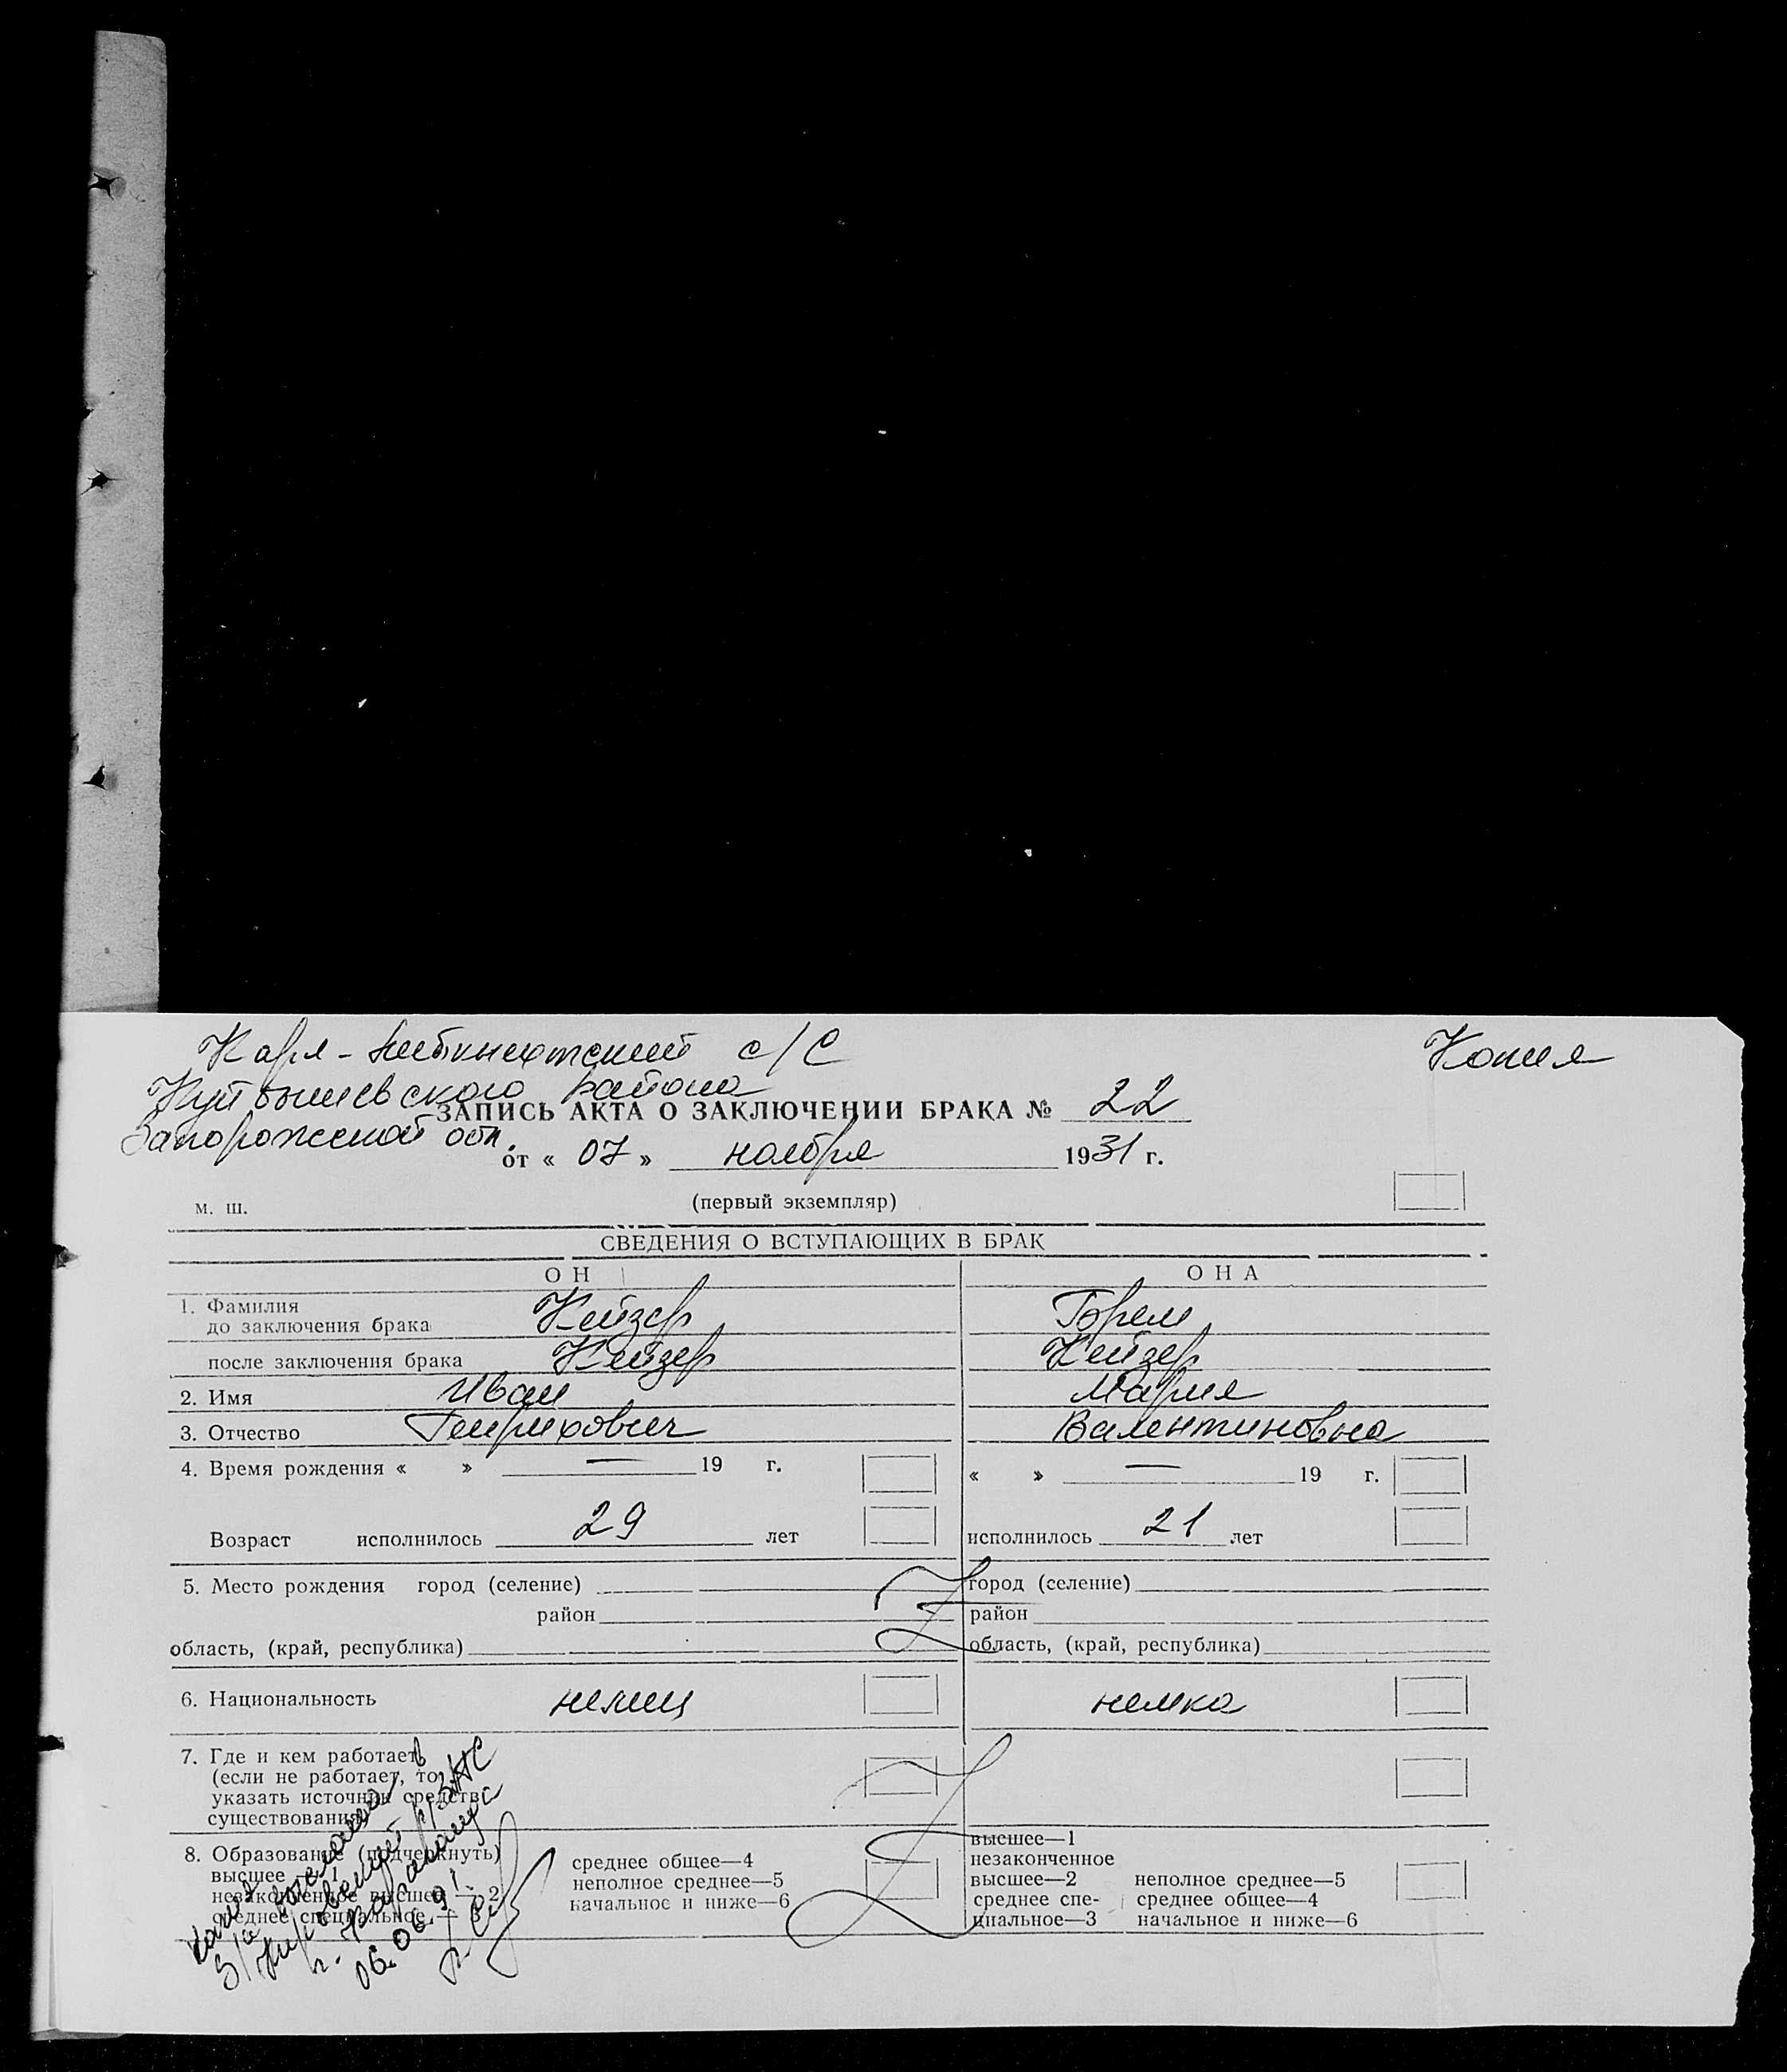 Карл-Либкнехтский с/С
Копия
Куйбышевского района
ЗАПИСЬ АКТА О ЗАКЛЮЧЕНИИ БРАКА № 22
Запорожской обл.
от « 07 » ноября 1931 г.
м. ш. (первый экземпляр)
СВЕДЕНИЯ О ВСТУПАЮЩИХ В БРАК
ОН ОНА
1. Фамилия
до заключения брака Кейзер Брем
после заключения брака Кейзер Кейзер
2. Имя Иван Мария
3. Отчество Генрихович Валентиновна
4. Время рождения « » — 19 г. « » — 19 г.
Возраст исполнилось 29 лет исполнилось 21 лет
5. Место рождения город (селение) город (селение)
район район
область, (край, республика) область, (край, республика)
6. Национальность немец немка
7. Где и кем работает
(если не работает, то
указать источник средств
существования
8. Образование (подчеркнуть)
высшее — 1
незаконченное высшее — 2
среднее специальное — 3
среднее общее—4
неполное среднее—5
начальное и ниже—6
высшее—1
незаконченное
высшее—2 неполное среднее—5
среднее спе- среднее общее—4
циальное—3 начальное и ниже—6
Копия выслана в
Кировский р/ЗАГС
г. Караганда
06.06.91г.